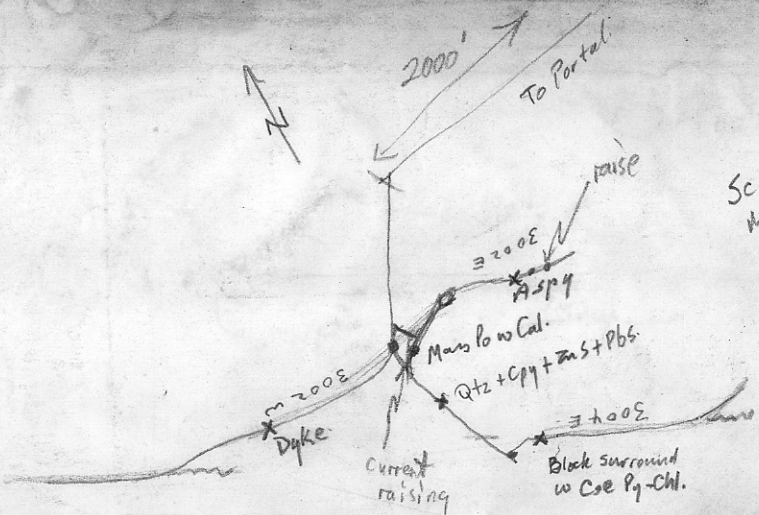 2000'
To Portal.
N
raise
Sc
3002E
Aspy
Mass Po w Cal.
Qtz + Cpy + ZnS + Pbs.
3002 W
Dyke
3004 E
Current
raising
Block surround
w Cse Py-Chl.